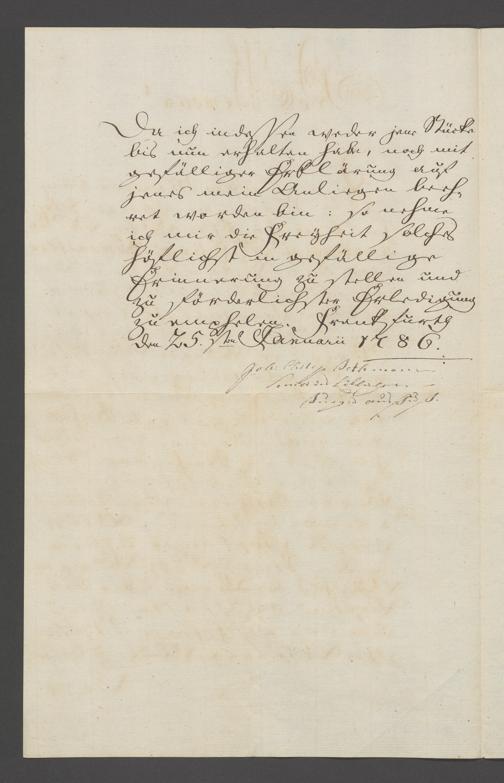 Da ich indessen weder jene Stücke
bis nun erhalten habe, noch mit
gefälliger Erklärung auf
jenes mein Anliegen beeh-
ret worden bin: so nehme
ich mir die Freyheit solches
höflichst in gefällige
Erinnerung zu stellen und
zu förderlichster Erledigung
zu emphelen. Frankfurth
den 25.sten Januarii 1786.
Joh. Philip Bethmann